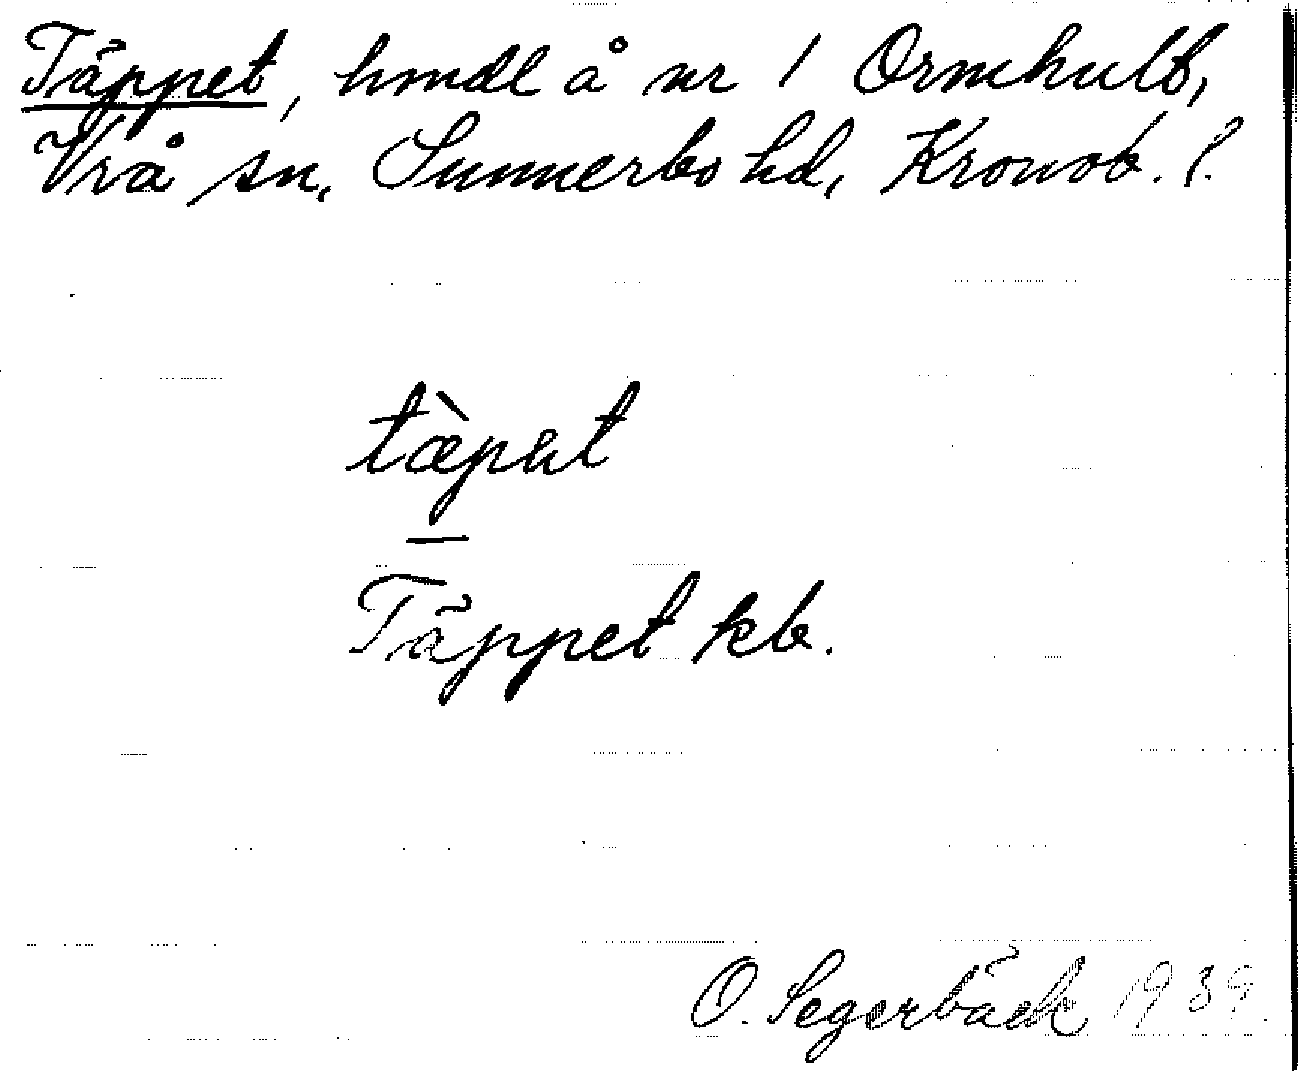 Täppet, hmdl å nr 1 Ormhult,
Vrå sn, Sunnerbo hd, Kronob. l.
tæ̀pət
Täppet kb.
O. Segerbäck 1939.